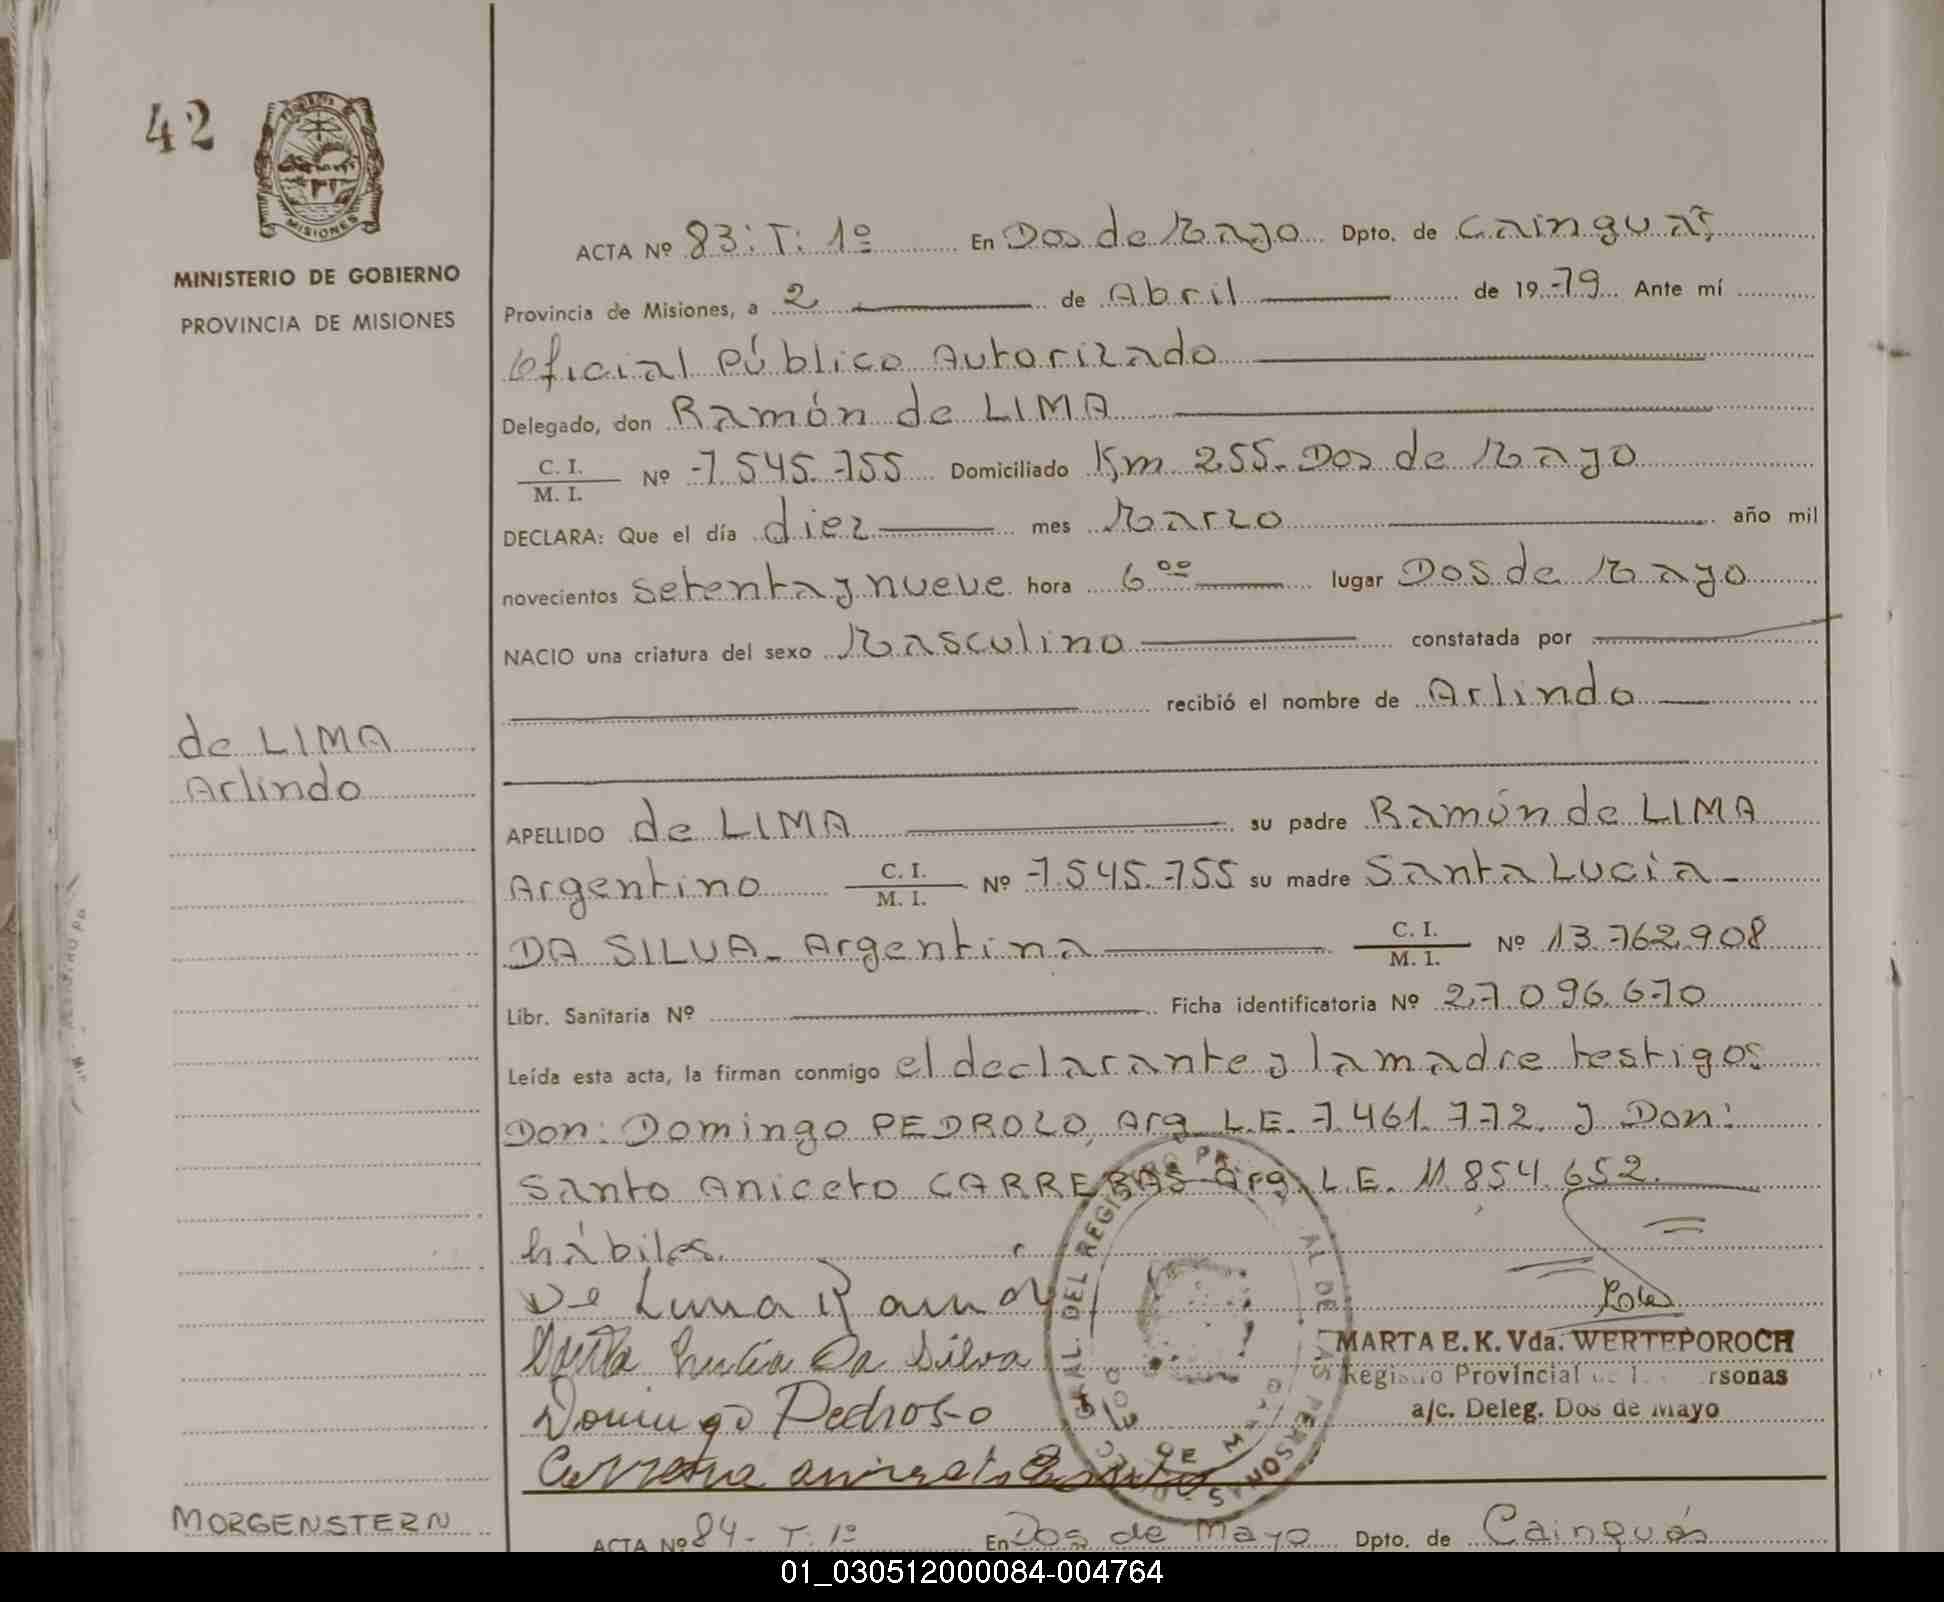 42
MISIONES
MINISTERIO DE GOBIERNO
PROVINCIA DE MISIONES
ACTA Nº 83: T: 1º En Dos de Mayo Dpto. de Cainguás
Provincia de Misiones, a 2 de Abril de 19 79 Ante mí
Oficial Público Autorizado
Delegado, don Ramón de LIMA
C. I.
M. I.
Nº 7.545.755 Domiciliado Km 255. Dos de Mayo
DECLARA: Que el día diez mes Marzo año mil
novecientos setenta y nueve hora 6 00 lugar Dos de Mayo
NACIO una criatura del sexo Masculino constatada por
recibió el nombre de Arlindo
de LIMA
Arlindo
APELLIDO de LIMA su padre Ramón de LIMA
Argentino C. I. M. I. Nº 7.545.755 su madre Santa Lucia
DA SILVA Argentina C. I. M. I. Nº 13.762.908
Libr. Sanitaria Nº Ficha identificatoria Nº 27.096.670
Leída esta acta, la firman conmigo el declarante y la madre testigos
Don: Domingo PEDROZO, Arg. L.E. 7.461.772. y Don:
Santo Aniceto CARRERAS Arg. L.E. 11.854.652.
hábiles.
De Lima Ramon
Santa Lucia Da Silva
Domingo Pedroso
MARTA E. K. Vda. WERTEPOROCH
Registro Provincial de las Personas
a/c. Deleg. Dos de Mayo
MORGENSTERN
ACTA Nº 84 - T. 1º En Dos de Mayo Dpto. de Cainguás
01_030512000084-004764